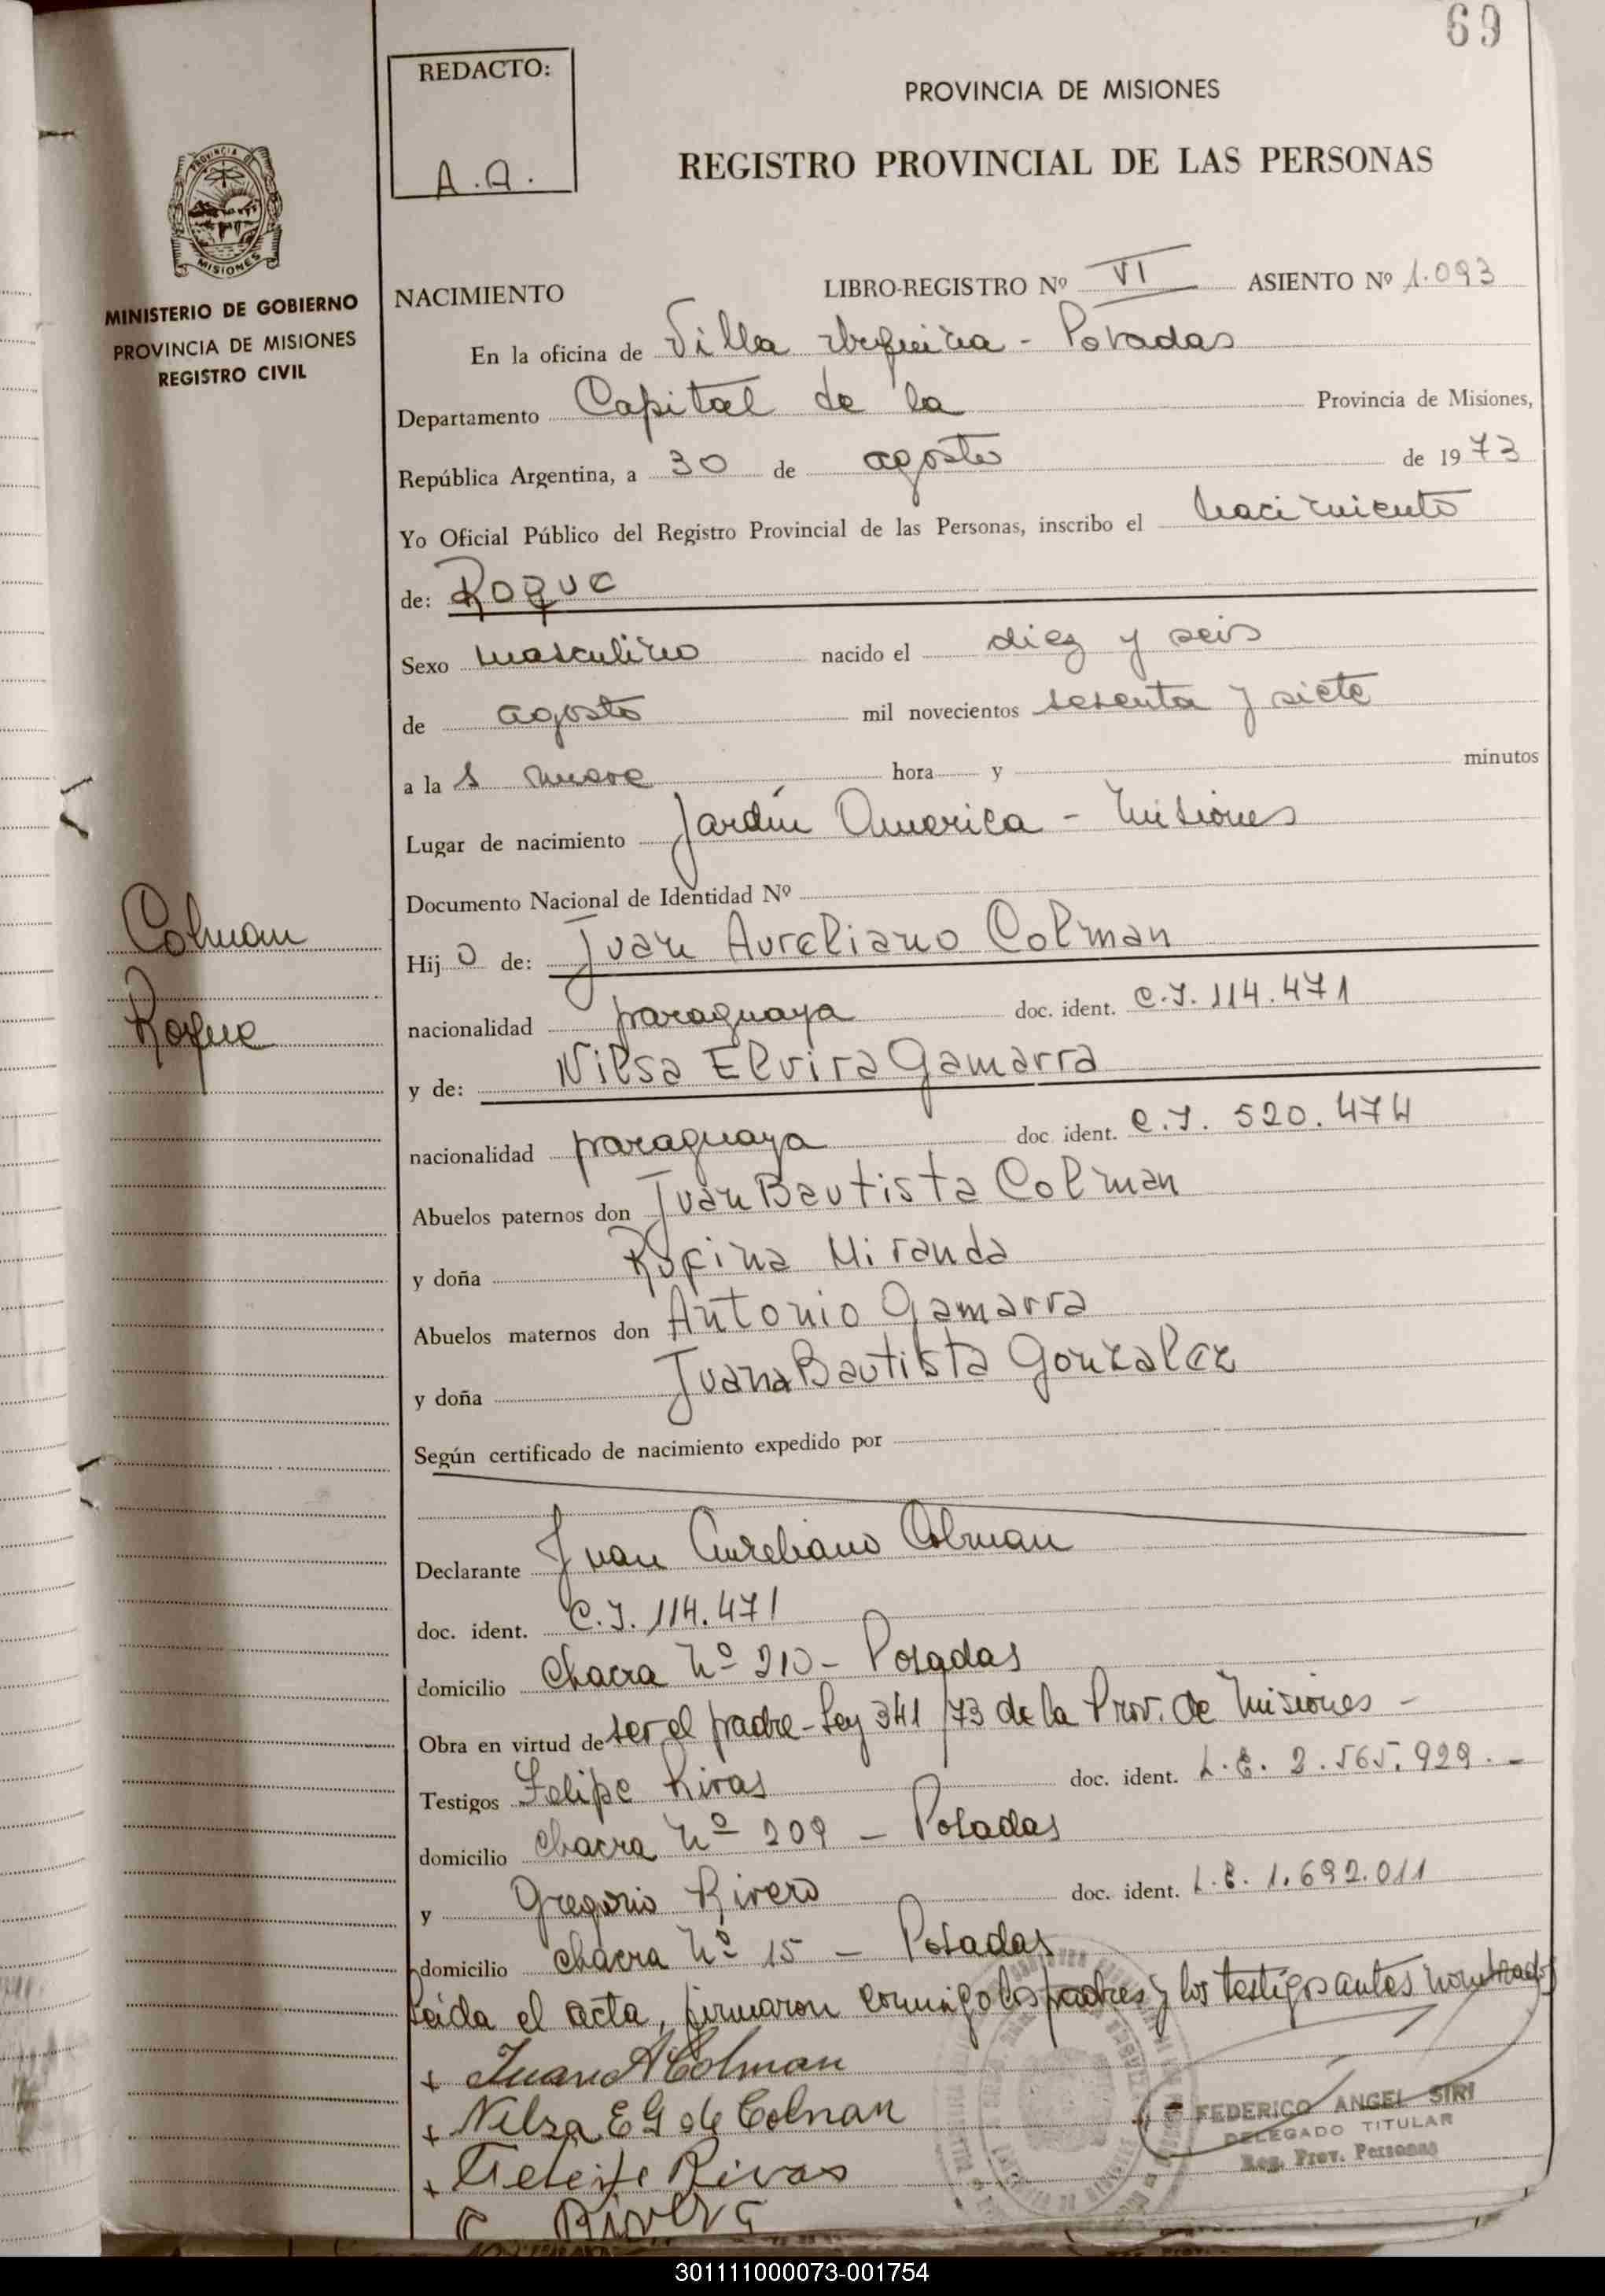 69
REDACTO:
A.A.
PROVINCIA DE MISIONES
REGISTRO PROVINCIAL DE LAS PERSONAS
MISIONES
MINISTERIO DE GOBIERNO
PROVINCIA DE MISIONES
REGISTRO CIVIL
NACIMIENTO LIBRO-REGISTRO Nº VI ASIENTO Nº 1.093
En la oficina de Villa Urquiza - Posadas
Departamento Capital de la Provincia de Misiones,
República Argentina, a 30 de agosto de 1973
Yo Oficial Público del Registro Provincial de las Personas, inscribo el nacimiento
de: Roque
Sexo masculino nacido el diez y seis
de agosto mil novecientos sesenta y siete
a la s nueve hora y minutos
Lugar de nacimiento Jardín America - Misiones
Documento Nacional de Identidad Nº
Colman
Roque
Hij o de: Juan Aureliano Colman
nacionalidad paraguaya doc. ident. C.I. 114.471
y de: Nilsa Elvira Gamarra
nacionalidad paraguaya doc ident. C.I. 520.474
Abuelos paternos don Juan Bautista Colman
y doña Rufina Miranda
Abuelos maternos don Antonio Gamarra
y doña Juana Bautista Gonzalez
Según certificado de nacimiento expedido por
Declarante Juan Aureliano Colman
doc. ident. C.I. 114.471
domicilio Chacra Nº 210 - Posadas
Obra en virtud de ser el padre - Ley 341/73 de la Prov. de Misiones -
Testigos Felipe Rivas doc. ident. L.E. 2.565.929. -
domicilio chacra Nº 209 - Posadas
y Gregorio Rivero doc. ident. L.E. 1.692.011
domicilio chacra Nº 15 - Posadas
Leida el acta, firmaron conmigo los padres y los testigos antes nombrados
+ Juan A Colman
+ Nilsa E G de Colman
+ Felipe Rivas
FEDERICO ANGEL SIRI
DELEGADO TITULAR
Reg. Prov. Personas
301111000073-001754